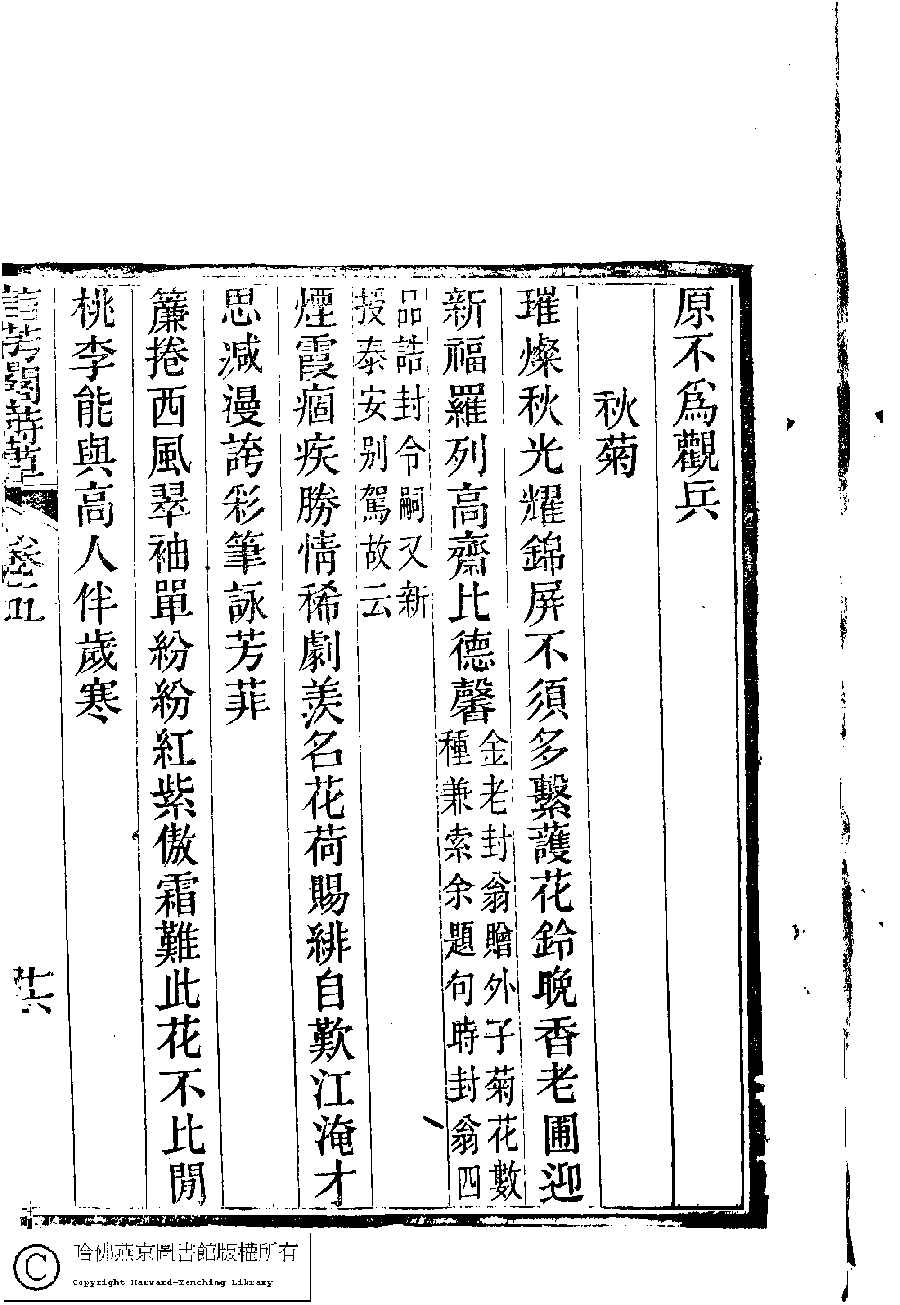 原不爲觀兵
秋菊
璀燦秋光耀錦屏不須多繫護花鈴晚香老圃迎
新福羅列高齋比德馨
金老封翁贈外子菊花數
種兼索余題句時封翁四
品誥封令嗣又新
授泰安别駕故云
煙霞痼疾勝情稀劇羨名花荷賜緋自歎江淹才
思減漫誇彩筆詠芳菲
簾捲西風翠袖單紛紛紅紫傲霜難此花不比閒
桃李能與高人伴歲寒
閣詩草
卷五
十六
哈佛燕京圖書館版權所有
Copyright Harvard-Yenching Library